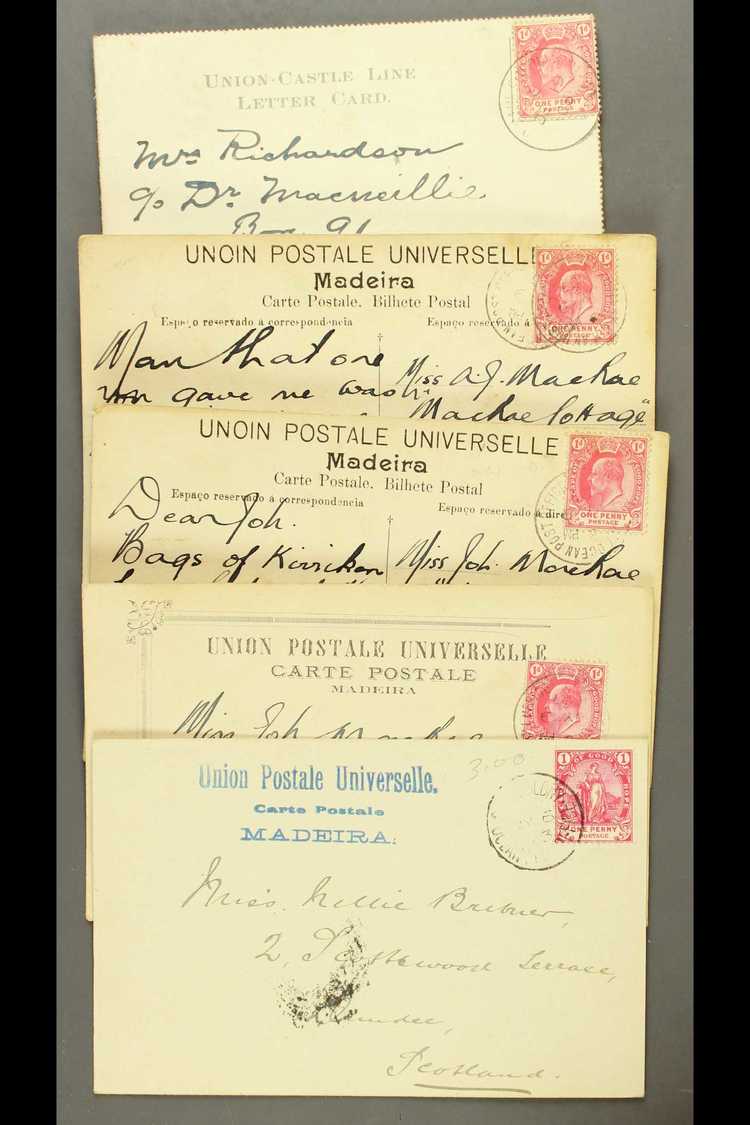 UNION-CASTLE LINE
LETTER CARD.
1d 1d
ONE PENNY
POSTAGE
Mrs Richardson
c/o Dr. Macneillie
Box 91
UNOIN POSTALE UNIVERSELLE
Madeira
Carte Postale. Bilhete Postal
Espaço reservado á correspondencia
Espaço reservado á
1d 1d
ONE PENNY
POSTAGE
Man that one
you gave me was
Miss A. J. MacRae
"MacRae Cottage"
UNOIN POSTALE UNIVERSELLE
Madeira
Carte Postale. Bilhete Postal
Espaço reservado á correspondencia
Espaço reservado á dire
1d 1d
ONE PENNY
POSTAGE
OCEAN POST
Dear Joh.
Bags of
Miss Joh. MacRae
UNION POSTALE UNIVERSELLE
CARTE POSTALE
MADEIRA
1d 1d
Miss Joh
3.00
Union Postale Universelle.
Carte Postale
MADEIRA.
1 OF GOOD 1
HOPE
ONE PENNY
POSTAGE
OCEAN
Miss. Nellie Bribner,
2, wood Terrace,
Dundee,
Scotland.